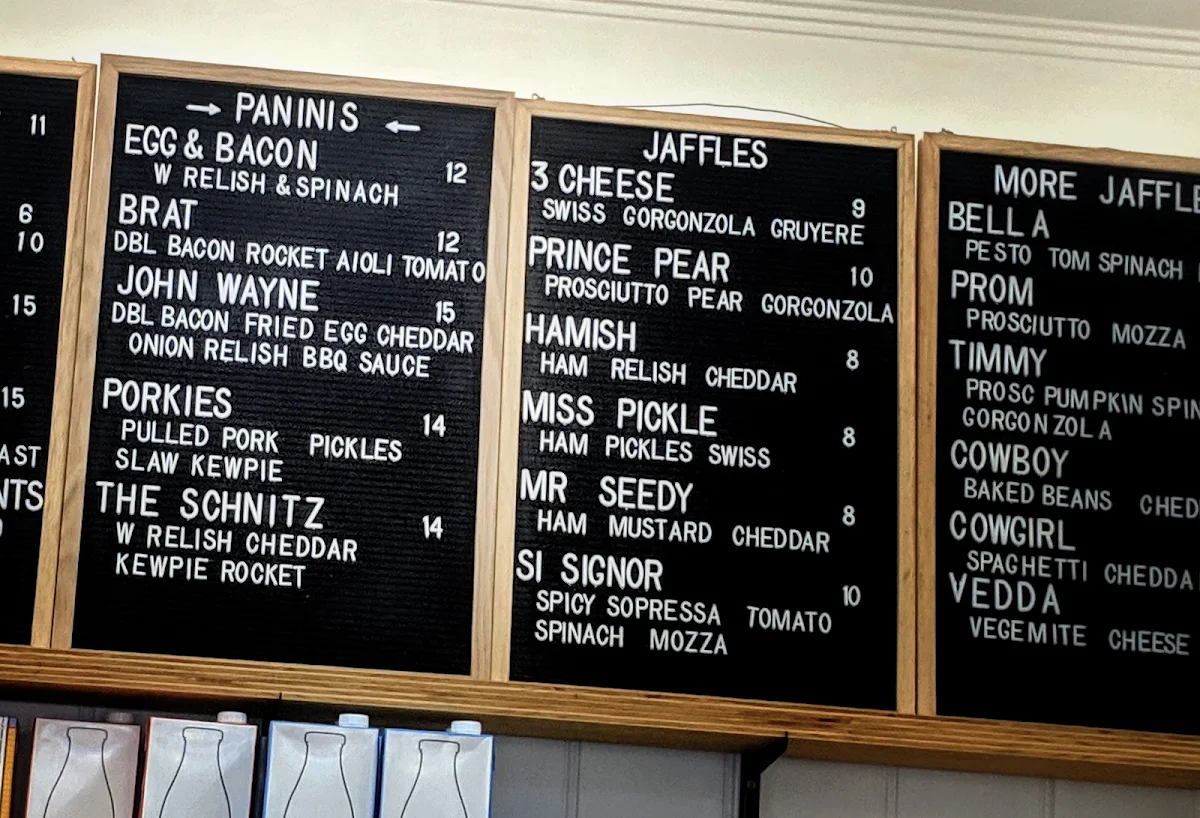 11
6
10
15
15
AST
NTS
→ PANINIS ←
EGG & BACON 12
W RELISH & SPINACH
BRAT 12
DBL BACON ROCKET AIOLI TOMATO
JOHN WAYNE 15
DBL BACON FRIED EGG CHEDDAR
ONION RELISH BBQ SAUCE
PORKIES 14
PULLED PORK PICKLES
SLAW KEWPIE
THE SCHNITZ 14
W RELISH CHEDDAR
KEWPIE ROCKET
JAFFLES
3 CHEESE 9
SWISS GORGONZOLA GRUYERE
PRINCE PEAR 10
PROSCIUTTO PEAR GORGONZOLA
HAMISH 8
HAM RELISH CHEDDAR
MISS PICKLE 8
HAM PICKLES SWISS
MR SEEDY 8
HAM MUSTARD CHEDDAR
SI SIGNOR 10
SPICY SOPRESSA TOMATO
SPINACH MOZZA
MORE JAFFLE
BELLA
PESTO TOM SPINACH
PROM
PROSCIUTTO MOZZA
TIMMY
PROSC PUMPKIN SPIN
GORGONZOLA
COWBOY
BAKED BEANS CHED
COWGIRL
SPAGHETTI CHEDDA
VEDDA
VEGEMITE CHEESE